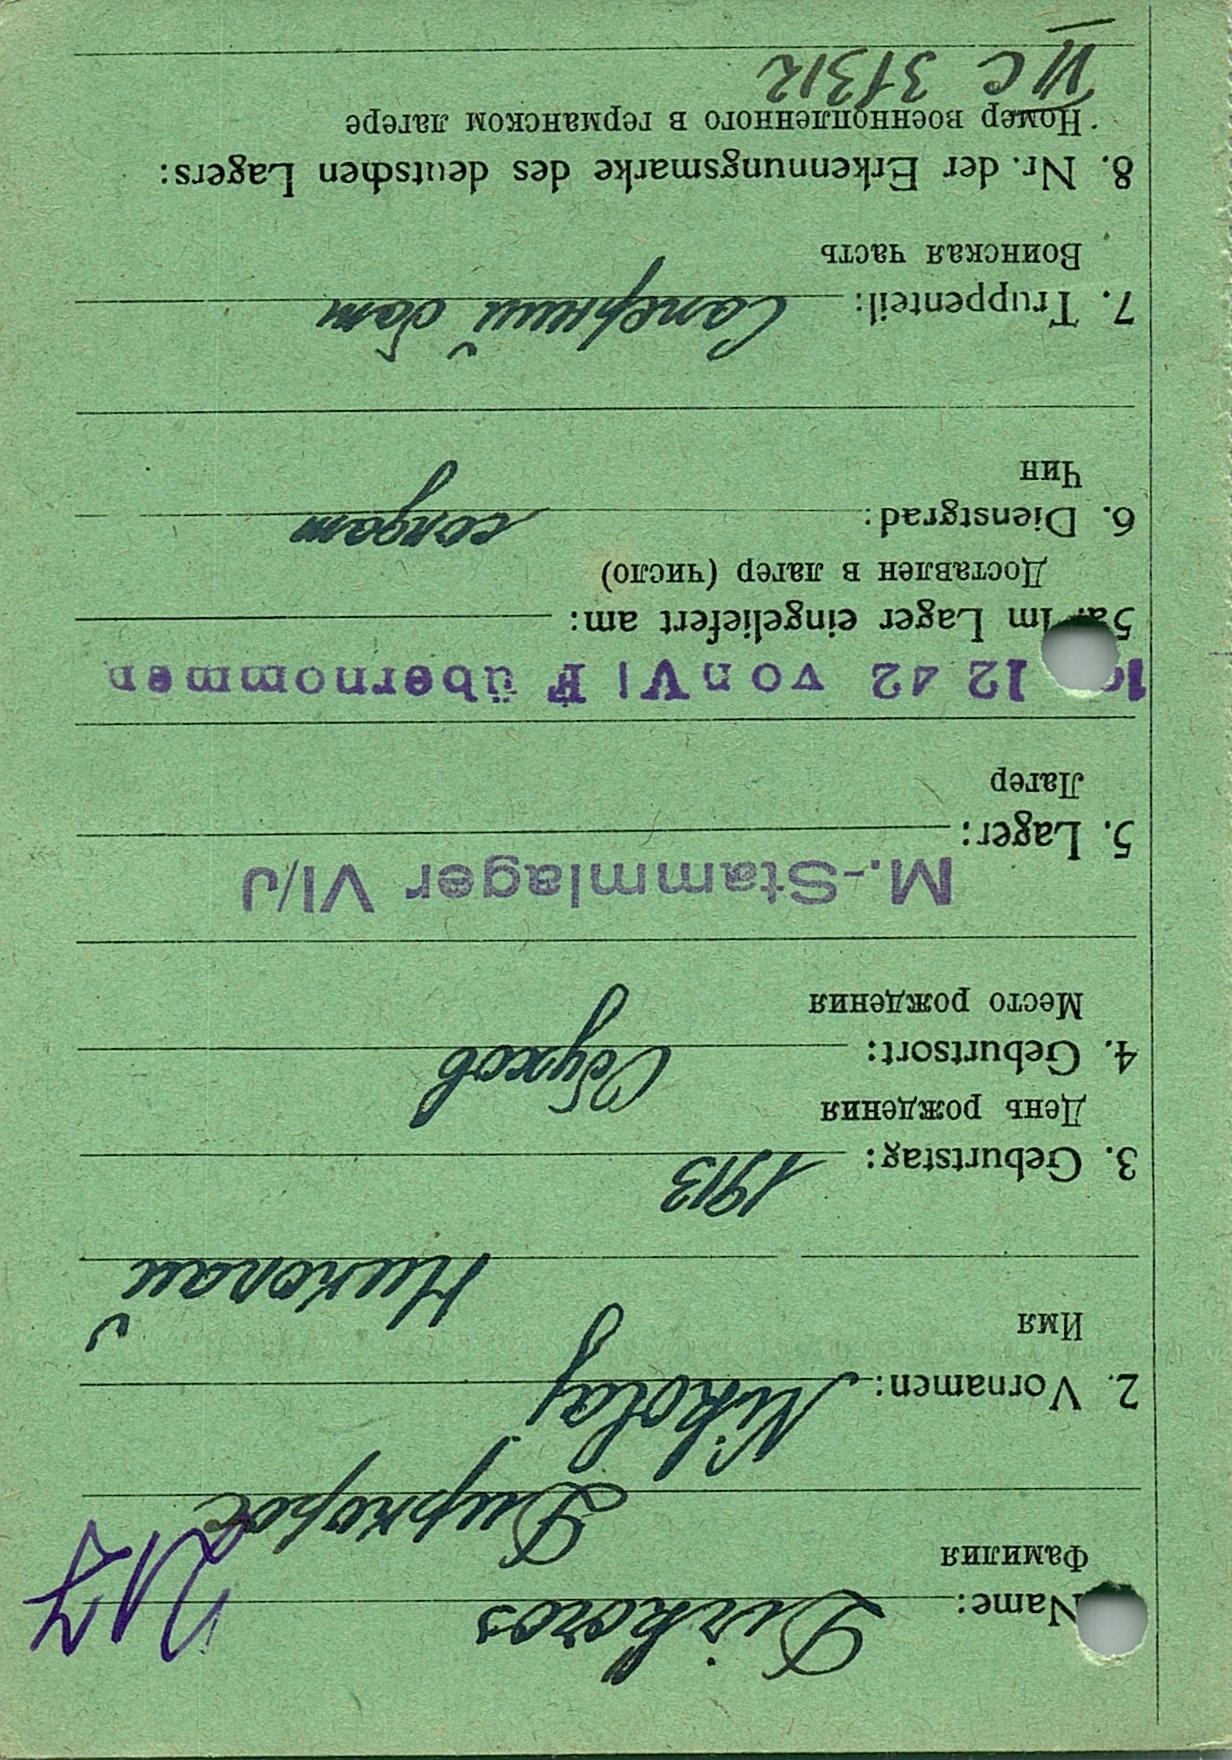 Name: Dirkoros 217
Фамилия Диркорос
2. Vornamen: Nikolaj
Имя
Николай
3. Geburtstag: 1913
День рождения
4. Geburtsort: Обухов
Место рождения
M.-Stammlager VI/J
5. Lager:
Лагер
12 42 von VI F übernommen
5a. Im Lager eingeliefert am:
Доставлен в лагер (число)
6. Dienstgrad: солдат
Чин
7. Truppenteil: Саперний бат
Воинская часть
8. Nr. der Erkennungsmarke des deutschen Lagers:
Номер военнопленного в германском лагере
VI C 31312